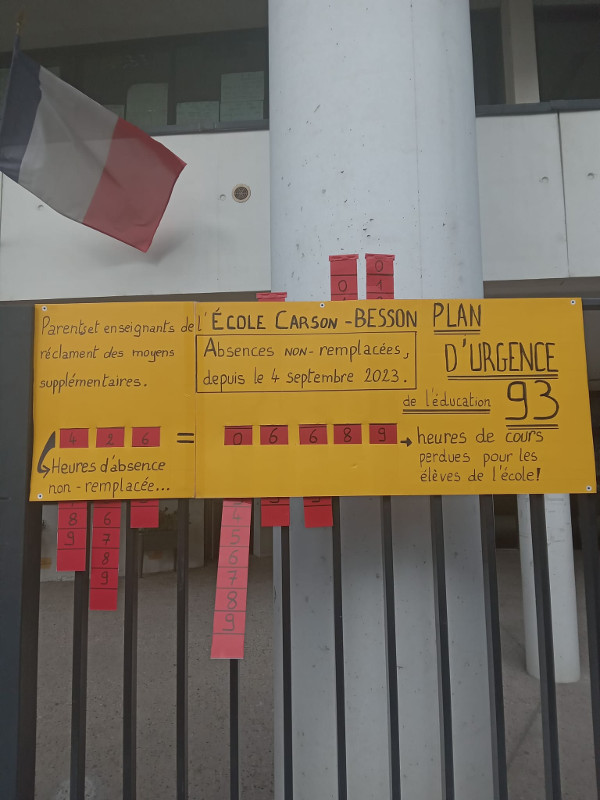 Parents et enseignants de l'ÉCOLE CARSON - BESSON
réclament des moyens
supplémentaires.
Absences NON-remplacées,
depuis le 4 septembre 2023.
PLAN
D'URGENCE
de l'éducation 93
4 2 6 = 0 6 6 8 9
Heures d'absence
non-remplacée...
heures de cours
perdues pour les
élèves de l'école!
0
0
1
8
9
6
7
8
9
4
5
6
7
8
9